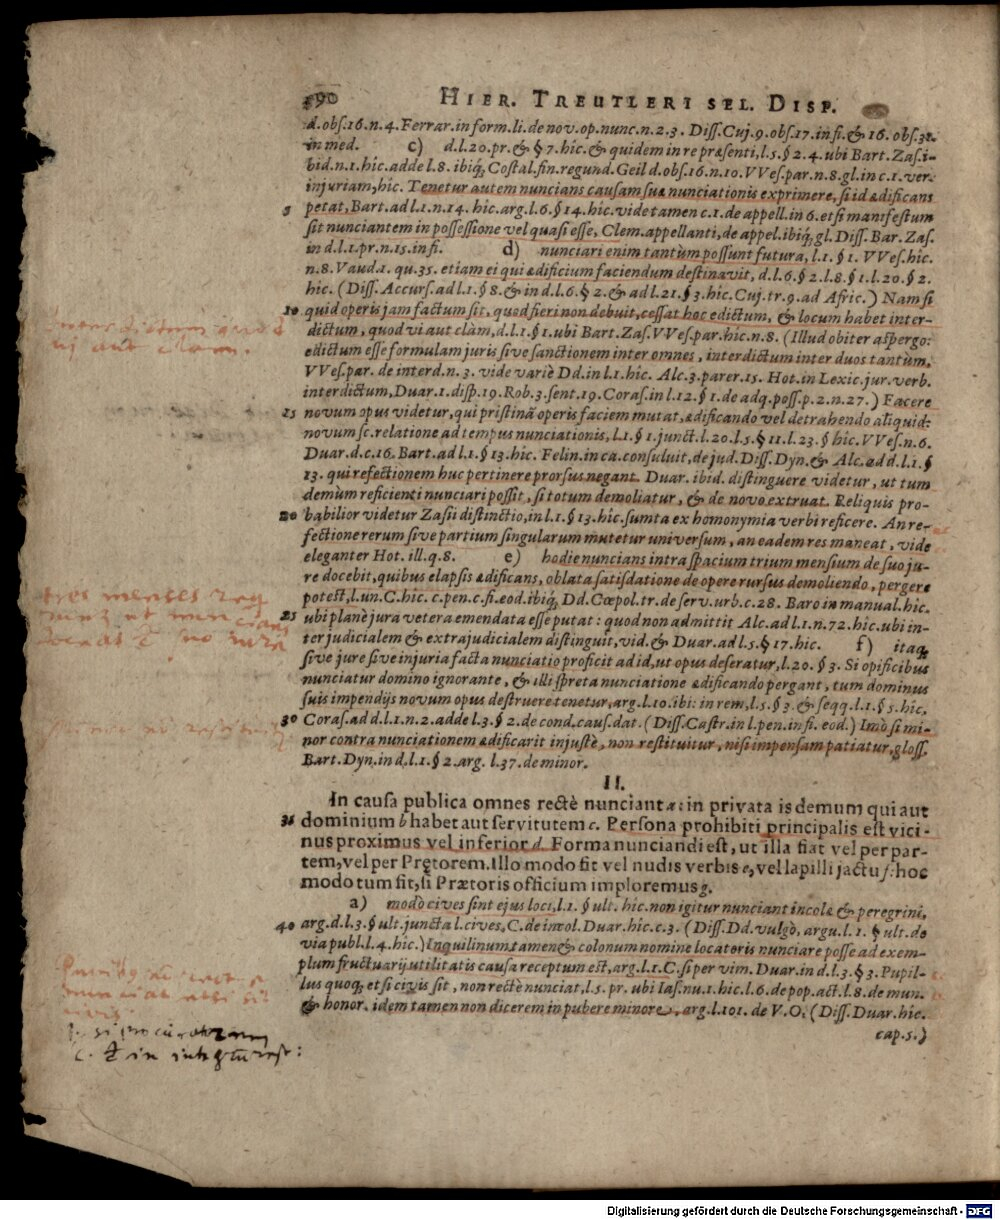 590 HIER. TREUTLERI SEL. DISP.
d. obs. 16. n. 4. Ferrar. in form. li. de nov. op. nunc. n. 2. 3. Diss. Cuj. 9. obs. 17. in fi. & 16. obs. 32.
in med. c) d. l. 20. pr. & § 7. hic. & quidem in re præsenti, l. 5. § 2. 4. ubi Bart. Zas. i-
bid. n. 1. hîc. adde l. 8. ibiq; Costal. fin. regund. Geil d. obs. 16. n. 10. VVes. par. n. 8. gl. in c. 1. ver.
injuriam, hîc. Tenetur autem nuncians causam suæ nunciationis exprimere, si id ædificans
5 petat, Bart. ad l. 1. n. 14. hîc. arg. l. 6. § 14. hîc. vide tamen c. 1. de appell. in 6. etsi manifestum
sit nunciantem in possessione vel quasi esse, Clem. appellanti, de appel. ibiq; gl. Diss. Bar. Zas.
in d. l. 1. pr. n. 15. in fi. d) nunciari enim tantùm possunt futura, l. 1. § 1. VVes. hîc.
n. 8. Vaud. 1. qu. 35. etiam ei qui ædificium faciendum destinavit, d. l. 6. § 2. l. 8. § 1. l. 20. § 2.
hîc. (Diss. Accurs. ad l. 1. § 8. & in d. l. 6. § 2. & ad l. 21. § 3. hîc. Cuj. tr. 9. ad Afric.) Nam si
10 quid operis jam factum sit, quod fieri non debuit, cessat hoc edictum, & locum habet inter-
dictum, quod vi aut clàm, d. l. 1. § 1. ubi Bart. Zas. VVes. par. hîc. n. 8. (Illud obiter aspergo:
edictum esse formulam juris sive sanctionem inter omnes, interdictum inter duos tantùm,
VVes. par. de interd. n. 3. vide variè Dd. in l. 1. hîc. Alc. 3. parer. 15. Hot. in Lexic. jur. verb.
interdictum, Duar. 1. disp. 19. Rob. 3. sent. 19. Coras. in l. 12. § 1. de adq. poss. p. 2. n. 27.) Facere
15 novum opus videtur, qui pristinã operis faciem mutat, ædificando vel detrahendo aliquid:
novum sc. relatione ad tempus nunciationis, l. 1. § 1. junct. l. 20. l. 5. § 11. l. 23. § hîc. VVes. n. 6.
Duar. d. c. 16. Bart. ad l. 1. § 13. hîc. Felin. in ca. consuluit, de jud. Diss. Dyn. & Alc. ad d. l. 1. §
13. qui refectionem huc pertinere prorsus negant. Duar. ibid. distinguere videtur, ut tum
demùm reficienti nunciari possit, si totum demoliatur, & de novo extruat. Reliquis pro-
20 babilior videtur Zasii distinctio, in l. 1. § 13. hîc. sumta ex homonymia verbi reficere. An re-
fectione rerum sive partium singularum mutetur universum, an eadem res maneat, vide
eleganter Hot. ill. q. 8. e) hodie nuncians intra spacium trium mensium de suo ju-
re docebit, quibus elapsis ædificans, oblata satisdatione de opere rursus demoliendo, pergere
potest, l. un. C. hîc. c. pen. c. fi. eod. ibiq; Dd. Cœpol. tr. de serv. urb. c. 28. Baro in manual. hîc.
25 ubi planè jura vetera emendata esse putat: quod non admittit Alc. ad l. 1. n. 72. hîc. ubi in-
ter judicialem & extrajudicialem distinguit, vid. & Duar. ad l. 5. § 17. hîc. f) itaq;
sive jure sive injuria facta nunciatio proficit ad id, ut opus deseratur, l. 20. § 3. Si opificibus
nunciatur domino ignorante, & illi spreta nunciatione ædificando pergant, tum dominus
suis impendijs novum opus destruere tenetur, arg. l. 10. ibi: in rem, l. 5. § 3. & seqq. l. 1. § 5. hîc.
30 Coras. ad d. l. 1. n. 2. adde l. 3. § 2. de cond. caus. dat. (Diss. Castr. in l. pen. in fi. eod.) Imò si mi-
nor contra nunciationem ædificarit injustè, non restituitur, nisi impensam patiatur, gloss.
Bart. Dyn. in d. l. 1. § 2. arg. l. 37. de minor.
II.
In causa publica omnes rectè nunciant a: in privata is demum qui aut
35 dominium b habet aut servitutem c. Persona prohibiti principalis est vici-
nus proximus vel inferior d. Forma nunciandi est, ut illa fiat vel per par-
tem, vel per Prętorem. Illo modo fit vel nudis verbis e, vel lapilli jactu f: hoc
modo tum fit, si Prætoris officium imploremus g.
a) modò cives sint ejus loci, l. 1. § ult. hîc. non igitur nunciant incolæ & peregrini,
40 arg. d. l. 3. § ult. juncta l. cives, C. de incol. Duar. hîc. c. 3. (Diss. Dd. vulgò, argu. l. 1. § ult. de
via publ. l. 4. hîc.) Inquilinum tamen & colonum nomine locatoris nunciare posse ad exem-
plum fructuarij utilitatis causa receptum est, arg. l. 1. C. si per vim. Duar. in d. l. 3. § 3. Pupil-
lus quoq; etsi civis sit, non rectè nunciat, l. 5. pr. ubi Ias. nu. 1. hîc. l. 6. de pop. act. l. 8. de mun.
& honor. idem tamen non dicerem in pubere minore, arg. l. 101. de V. O. (Diss. Duar. hîc.
cap. 5.)
Interdictum quod
vi aut clam.
tres menses